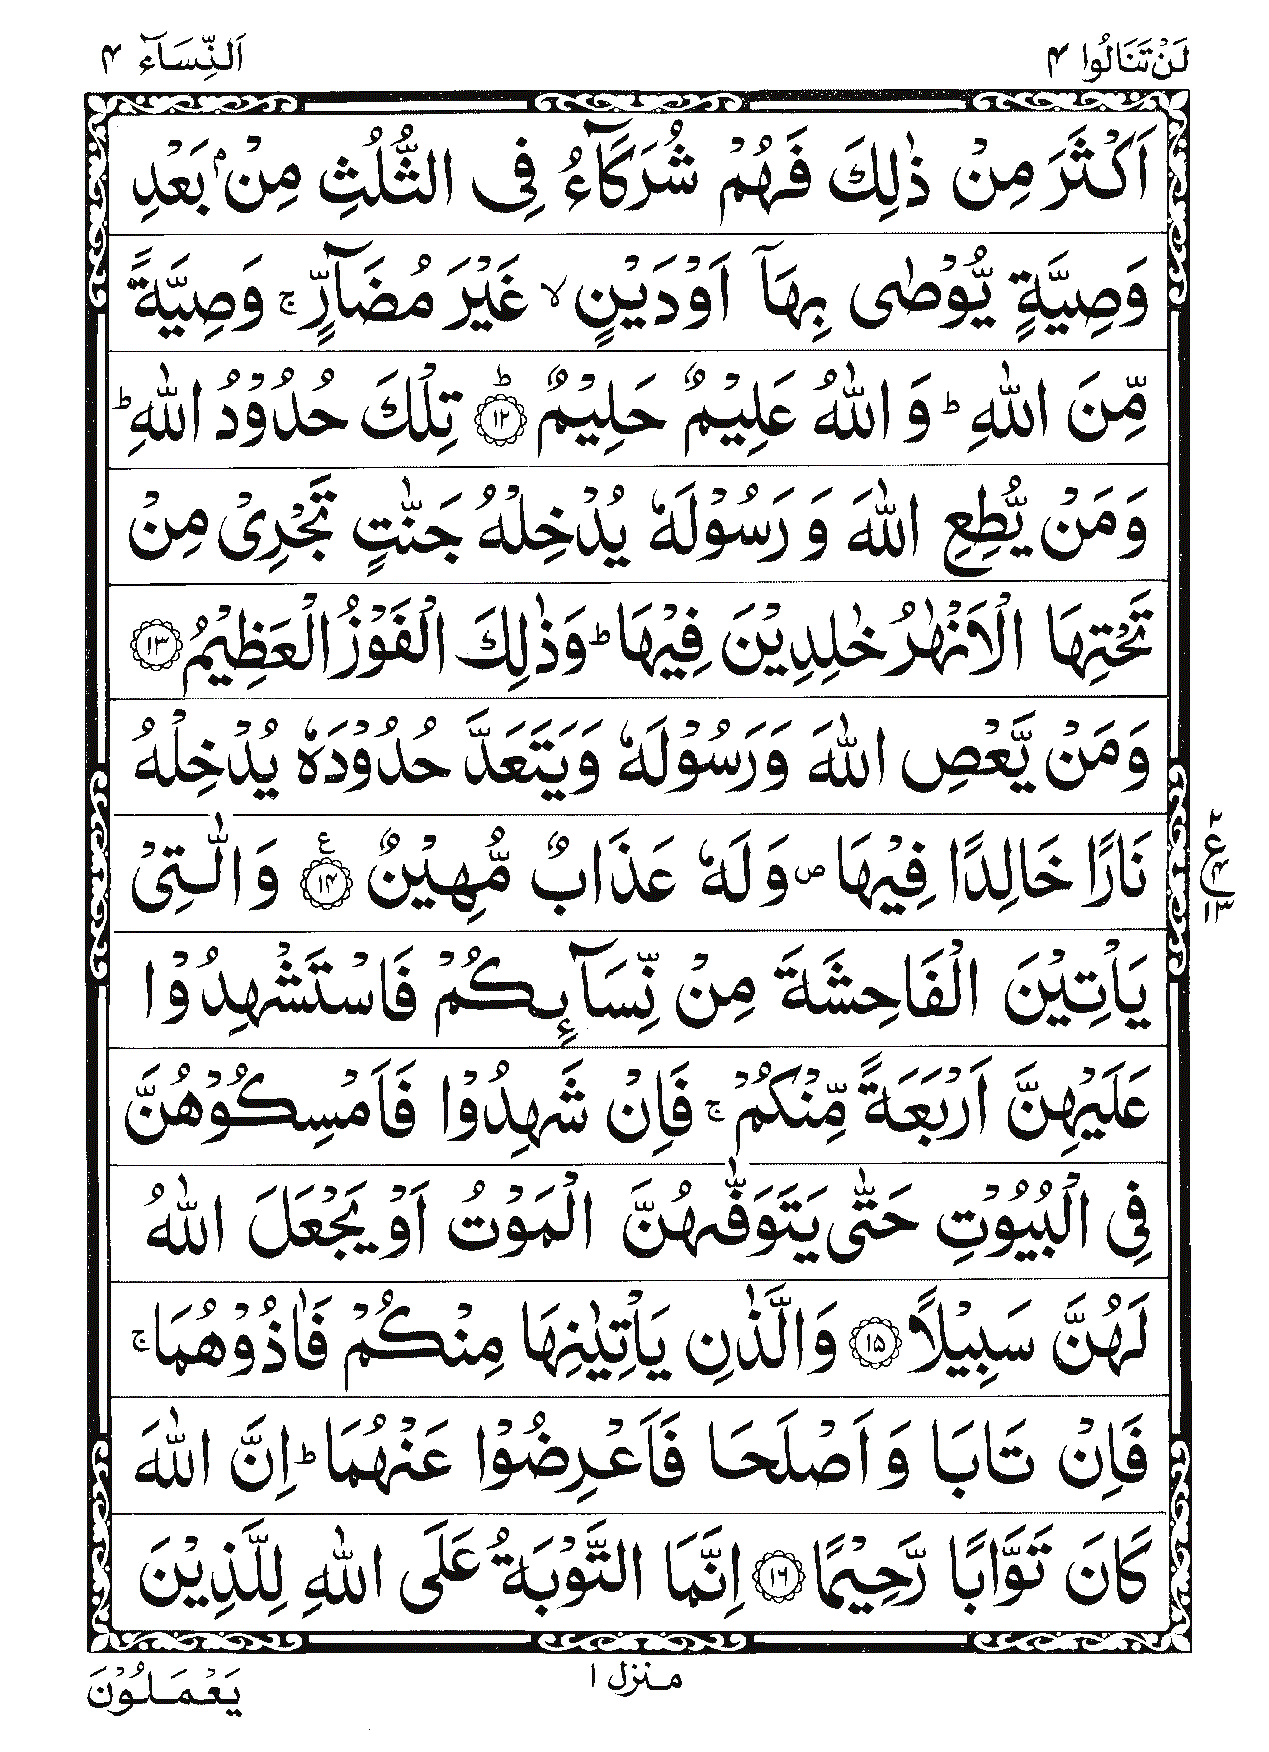 لَنْ تَنَالُوا ۴
اَلنِّسَآء ۴
اَكْثَرَ مِنْ ذٰلِكَ فَهُمْ شُرَكَآءُ فِى الثُّلُثِ مِنْۢ بَعْدِ
وَصِيَّةٍ يُّوْصٰى بِهَآ اَوْ دَيْنٍ ۙ غَيْرَ مُضَآرٍّ ۚ وَصِيَّةً
مِّنَ اللّٰهِ ؕ وَ اللّٰهُ عَلِيْمٌ حَلِيْمٌ ؕ ﴿۱۲﴾ تِلْكَ حُدُوْدُ اللّٰهِ ؕ
وَمَنْ يُّطِعِ اللّٰهَ وَ رَسُوْلَهٗ يُدْخِلْهُ جَنّٰتٍ تَجْرِىْ مِنْ
تَحْتِهَا الْاَنْهٰرُ خٰلِدِيْنَ فِيْهَا ؕ وَذٰلِكَ الْفَوْزُ الْعَظِيْمُ ﴿۱۳﴾
وَمَنْ يَّعْصِ اللّٰهَ وَرَسُوْلَهٗ وَيَتَعَدَّ حُدُوْدَهٗ يُدْخِلْهُ
نَارًا خَالِدًا فِيْهَا ۪ وَ لَهٗ عَذَابٌ مُّهِيْنٌ ﴿۱۴﴾ ع وَ الّٰتِىْ
يَاْتِيْنَ الْفَاحِشَةَ مِنْ نِّسَآئِكُمْ فَاسْتَشْهِدُوْا
عَلَيْهِنَّ اَرْبَعَةً مِّنْكُمْ ۚ فَاِنْ شَهِدُوْا فَاَمْسِكُوْهُنَّ
فِى الْبُيُوْتِ حَتّٰى يَتَوَفّٰهُنَّ الْمَوْتُ اَوْ يَجْعَلَ اللّٰهُ
لَهُنَّ سَبِيْلًا ﴿۱۵﴾ وَالَّذٰنِ يَاْتِيٰنِهَا مِنْكُمْ فَاٰذُوْهُمَا ۚ
فَاِنْ تَابَا وَ اَصْلَحَا فَاَعْرِضُوْا عَنْهُمَا ؕ اِنَّ اللّٰهَ
كَانَ تَوَّابًا رَّحِيْمًا ﴿۱۶﴾ اِنَّمَا التَّوْبَةُ عَلَى اللّٰهِ لِلَّذِيْنَ
ع ۴ ۱۳
منزل ۱
يَعْمَلُوْنَ